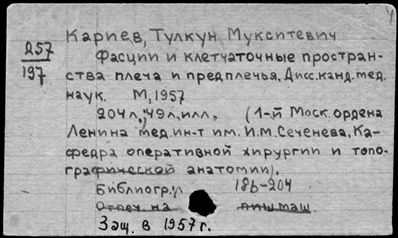 Кариев, Тулкун Мукситевич
257
197
Фасции и клетчаточные простран-
ства плеча и предплечья. Дисс.канд.мед.
наук. М, 1957
204л, 49л.илл. (1-й Моск. ордена
Ленина мед.ин-т им. И.М.Сеченева, Ка-
федра оперативной хирургии и топо-
графической анатомии).
Библиогр.: 186-204
Отпеч. на пишмаш
Защ. в 1957г.